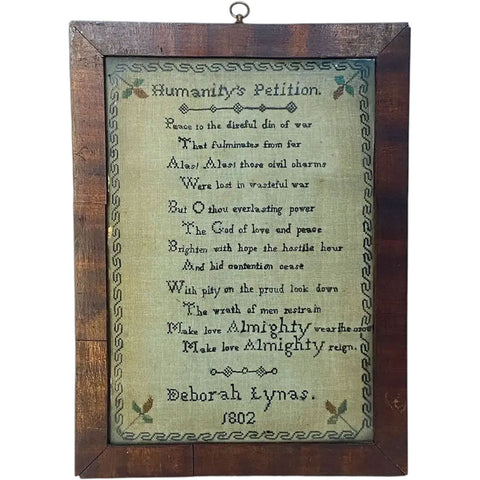 Humanity's Petition.
Peace to the direful din of war
That fulminates from far
Alas! Alas! those civil charms
Were lost in wasteful war
But O thou everlasting power
The God of love and peace
Brighten with hope the hostile hour
And bid contention cease
With pity on the proud look down
The wrath of men restrain
Make love Almighty wear the crown
Make love Almighty reign.
Deborah Lynas.
1802